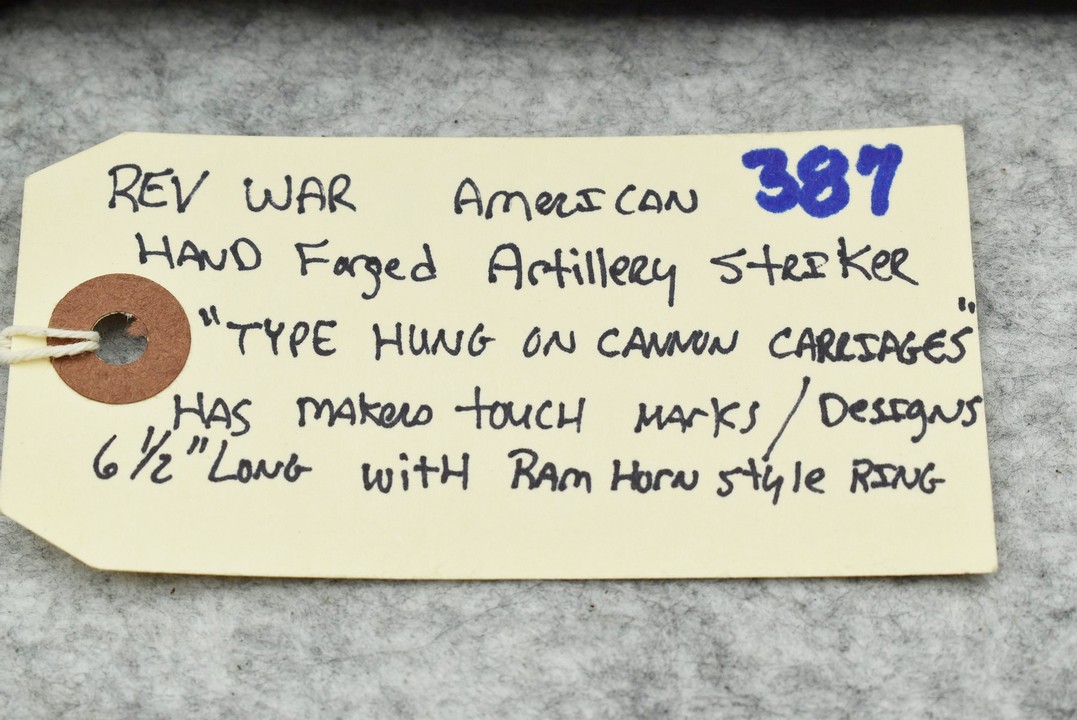 REV WAR American 387
HAND Forged Artillery Striker
"TYPE HUNG ON CANNON CARRIAGES"
HAS makers touch marks / Designs
6 1/2" Long with Ram Horn style RING